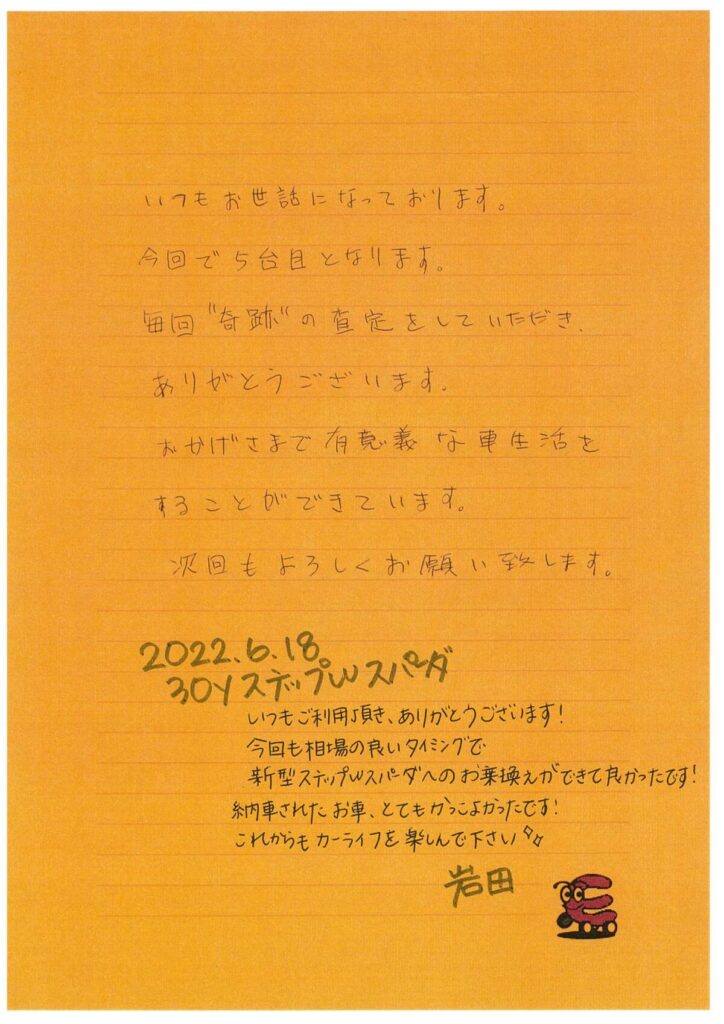 いつもお世話になっております。
今回で5台目となります。
毎回"奇跡"の査定をしていただき、
ありがとうございます。
おかげさまで有意義な車生活を
することができています。
次回もよろしくお願い致します。
2022.6.18
30Yステップwスパーダ
いつもご利用頂き、ありがとうございます!
今回も相場の良いタイミングで
新型ステップwスパーダへのお乗換えができて良かったです!
納車されたお車、とてもかっこよかったです!
これからもカーライフを楽しんで下さい
岩田